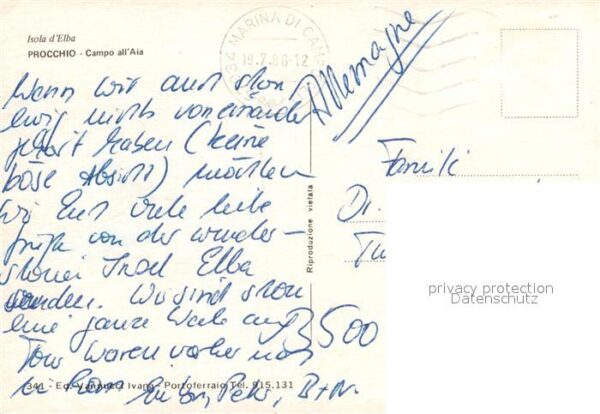 Isola d'Elba
PROCCHIO - Campo all'Aia
MARINA DI CAMPO
19.7.86-12
Allemagne
Wenn wir auch schon
ewig nichts voneinander
gehört haben (keine
böse Absicht) möchten
wir Euch viele liebe
Grüße von der wunder-
schönen Insel Elba
senden. Wir sind schon
eine ganze Woche auf
Tour waren vorher noch
in
Familie
Dr.
3500
Riproduzione vietata
privacy protection
Datenschutz
341 - Ed. Vannucci Ivana - Portoferraio Tel. 915.131